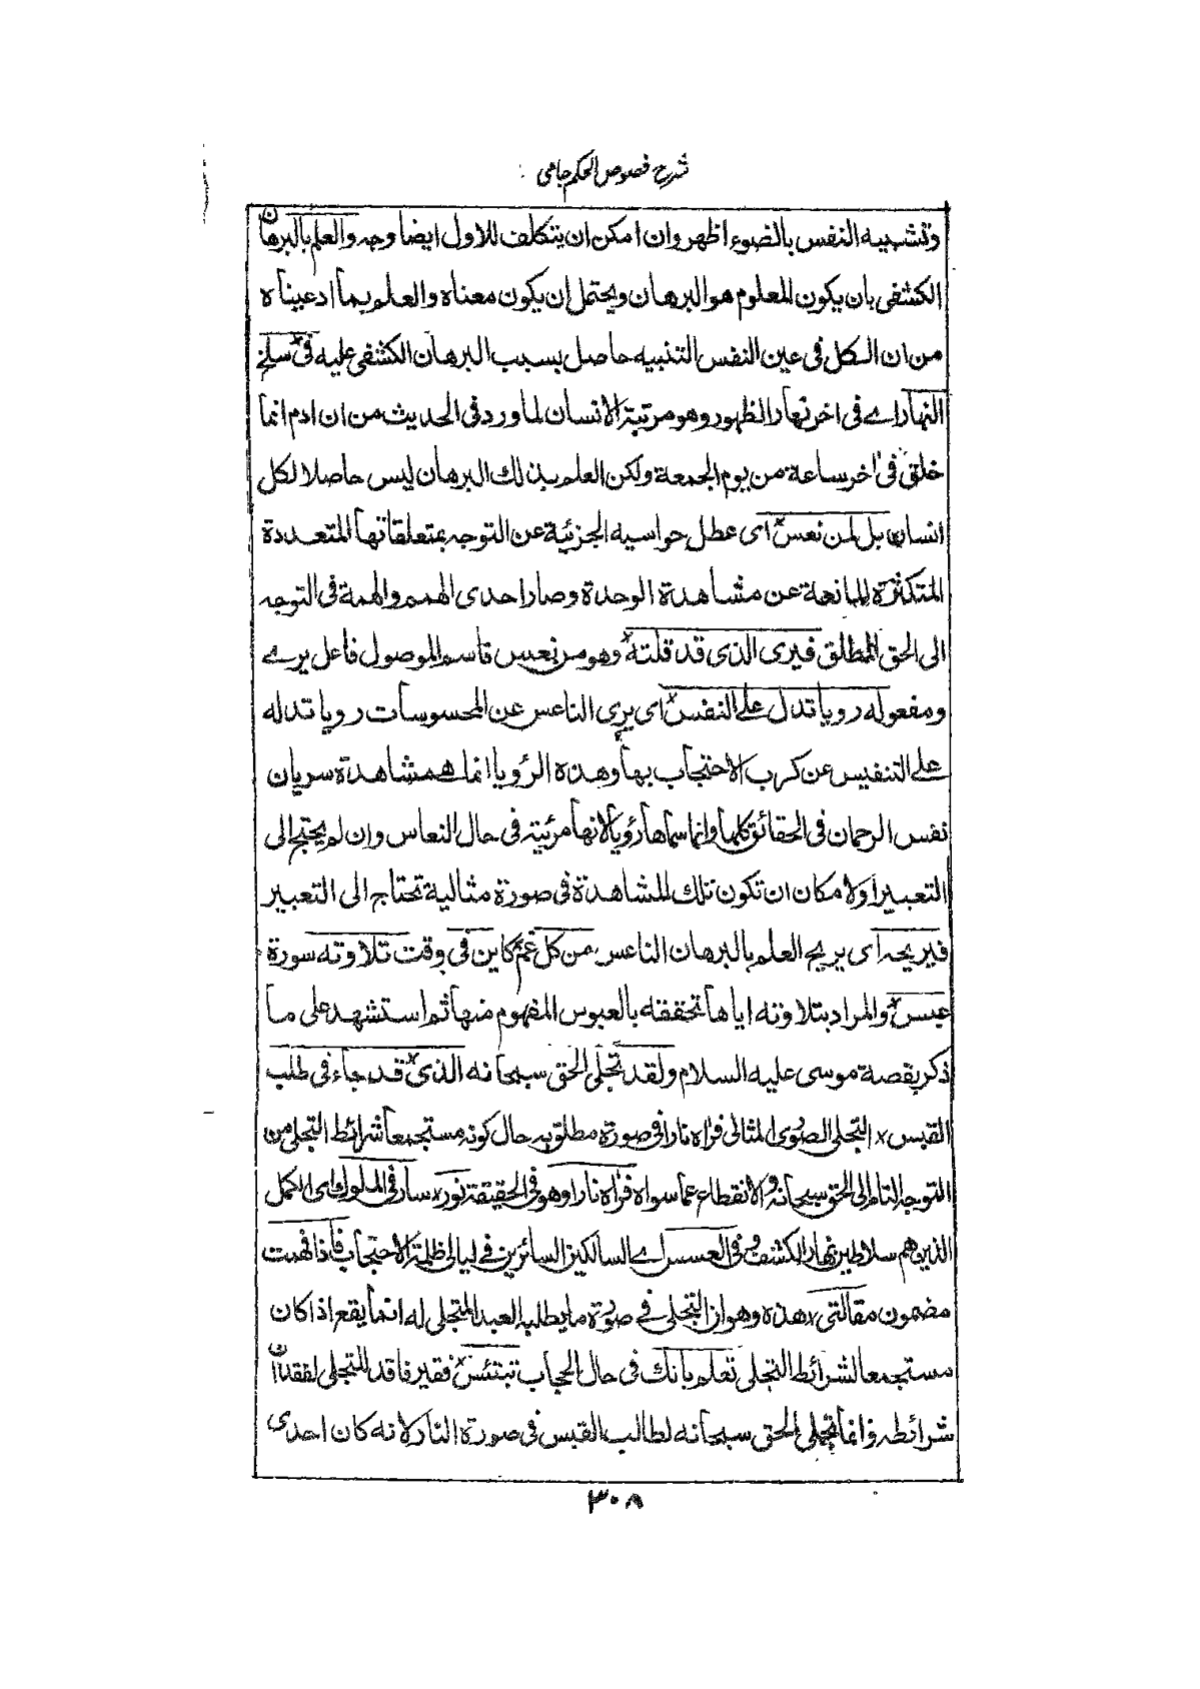 شرح فصوص الحكم جامی
وتشبيه النفس بالضوء اظهر وان امكن ان يتكلف للاول ايضا وجه والعلم بالبرهان
الكشفى بان يكون المعلوم هو البرهان ويحتمل ان يكون معناه والعلم بما ادعيناه
من ان الكل فى عين النفس التنبيه حاصل بسبب البرهان الكشفى عليه فى سلخ
النهار اے فى اخر نهار الظهور وهو مرتبة الانسان لما ورد فى الحديث من ان ادم انما
خلق فى اخر ساعة من يوم الجمعة ولكن العلم بذلك البرهان ليس حاصلا لكل
انسان بل لمن نعس اى عطل حواسيه الجزئية عن التوجه بمتعلقاتها المتعددة
المتكثرة المانعة عن مشاهدة الوحدة وصار احدى الهمم والهمة فى التوجه
الى الحق المطلق فيرى الذى قد قلته وهو من نعس فاسم الموصول فاعل يرے
ومفعوله رويا تدل على النفس اى يرى الناعس عن المحسوسات رويا تدله
على التنفيس عن كرب الاحتجاب بها وهذه الرؤيا انما هى مشاهدة سريان
نفس الرحمان فى الحقائق كلها وانما سماها رؤيا لانها مرئية فى حال النعاس وان لم يحتج الى
التعبير اولا مكان ان تكون تلك المشاهدة فى صورة مثالية تحتاج الى التعبير
فيريحه اى يريح العلم بالبرهان الناعس من كل غم كاين فى وقت تلاوته سورة
عبس والمراد بتلاوته اياها تحققه بالعبوس المفهوم منها ثم استشهد على ما
ذكر بقصة موسى عليه السلام ولقد تجلى الحق سبحانه الذى قد جاء فى طلب
القبس التجلى الصورى المثالى فراه نارا فى صورة مطلوبه حال كونه مستجمعا شرائط التجلى من
التوجه التام الى الحق سبحانه والانقطاع عما سواه فراه نارا وهو فى الحقيقة نور سار فى الملوك اى الكمل
الذين هم سلاطين نهار الكشف وفى العسس اے السالكين السائرين فى ليالى ظلمة الاحتجاب فاذا فهمت
مضمون مقالتى هذه وهو ان التجلى فى صورة ما يطلبه العبد المتجلى له انما يقع اذا كان
مستجمعا لشرائط التجلى تعلم بانك فى حال الحجاب تبتئس فقير فاقد للتجلى لفقدان
شرائطه وانما تجلى الحق سبحانه لطالب القبس فى صورة النار لانه كان احدى
٣٠٨